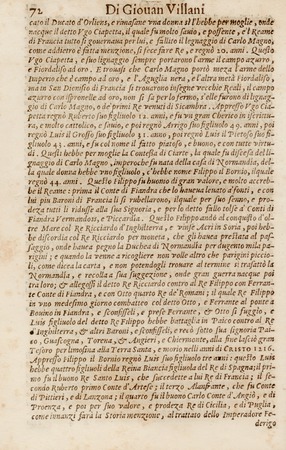 72 Di Giouan Villani
cato il Ducato d'Orliens, e rimasane vna donna si l'hebbe per moglie, onde
nacque il detto Vgo Ciapetta, il quale fu molto sauio, e possente, e l Reame
di Francia tutto si gouernaua per lui, e fallito il legnaggio di Carlo Magno,
come addietro è fatta mentione, si fece fare Re, e regnò 20. anni. Questo
Vgo Ciapetta, e suo lignaggio sempre portarono l'arme il campo azurro,
e Fiordaliso ad oro. E trouasi che Carlo Magno portò mega l'arme dello
Imperio che è campo ad oro, e l'Aguglia nera, e l'altra metà Fiordaliso,
ma in San Dionisio di Francia si trouarono insegne vecchie Reali, il campo
azurro con isprone ad oro, non si sa per lo fermo, e elle furono il legnag-
gio di Carlo Magno, o de' primi Re venuti di Sicambra. Appresso Vgo Cia-
petta regnò Ruberto suo figliuolo 21. anni, e fu va gran Cherico in iscrittu-
ra, e molto cattolico, e santo, e poi regnò Arrigo suo figliuolo 40. anni, poi
regnò Luis il Grosso suo figliuolo 31. anno, poi regnò Luis il Pietoso suo fi-
gliuolo 43. anni, e fu col nome il fatto piatoso, e buono, e con tutte virtu-
di. Questi hebbe per moglie la Contessa di Ciarte, la quale fu discesa del li-
gnaggio di Carlo Magno, imperoche fu nata della casa di Normandia, del-
la quale donna hebbe vno figliuolo, c'hebbe nome Filippo il Bornio, ilquale
regnò 44. anni. Questo Filippo fu buomo di gran valore, e molto accreb-
be il Reame: prima il Conte di Fiandra che lo haueua leuato d'fonti, e con
lui piu Baroni di Francia li si rubellarono, ilquale per suo senno, e pro-
deza tutti li ridusse alla sua Signoria, e per lo detto fallo tolse à Conti di
Fiandra Vermandois, e Piccardia. Questo Filippo andò al conquisto d'ol-
tre Mare col Re Ricciardo d'Inghilterra, e vinse Acri in Soria, poi heb-
be discordia col Re Ricciardo per moneta, che gli haueua prestata al pas-
saggio, onde haueua pegno la Duchea di Normandia per dugento mila pa-
rigini; e quando la venne a ricogliere non volle altro che parigini piccio-
li, come dicea la carta, e non potendogli trouare al termine si rimase to la
Normandia, e recolla a sua suggezione, onde gran guerra nacque poi
tra loro; & allegossi il detto Re Ricciardo contro al Re Filippo con Ferran-
te Conte di Fiandra, e con Otto quarto Re de' Romani; il quale Re Filippo
in vno medesimo giorno combatteo col detto Otto, e Ferrante al ponte a
Bonino in Fiandra, e sconfisseli, e prese Ferrante, & Otto si fuggio, e
Luis figliuolo del detto Re Filippo hebbe battaglia in Paito contro al Re
d'Inghilterra, & altri Baroni, e sconfisseli, e recò sotto sua signoria Pai-
to, Guascogna, Torena, & Angieri, e Chiermonte, alla fine lasciò gran
Tesoro per limosina alla Terra Santa, e morio nelli anni di CRISTO 1216.
Appresso Filippo il Bornio regnò Luis suo figliuolo tre anni: questo Luis
hebbe quattro figliuoli della Reina Bianca figliuola del Re di Spagna; il pri-
mo fu il buono Re Santo Luis, che succedette a lui Re di Francia; il se-
condo Ruberto primo Conte d'Artese; il terzo Alanfrante, che fu Conte
di Pittieri, e di Lanzona; il quarto fu il buono Carlo Conte d'Angiò, e di
Proenza, e poi per suo valore, e prodeza Re di Cicilia, e di Puglia,
come innanzi farà la Storia menzione, al trattato dello Imperadore Fe-
derigo